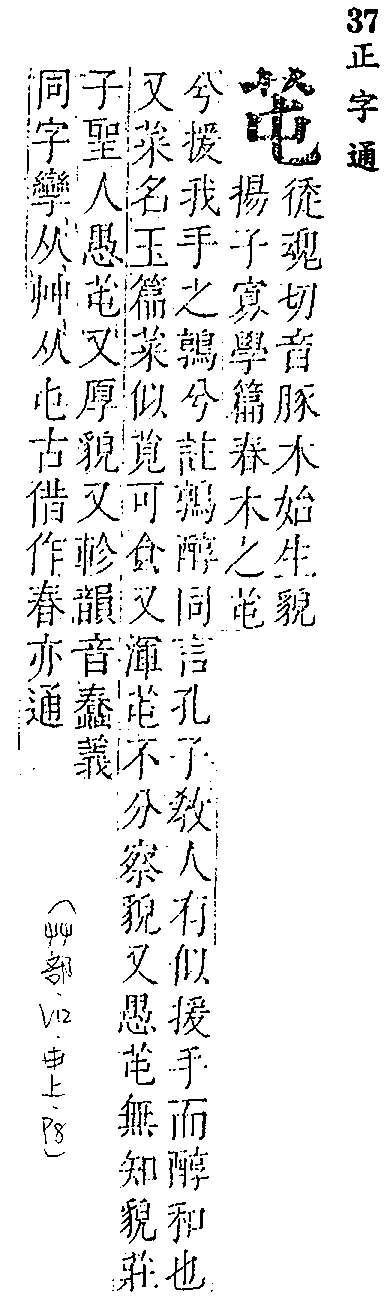 37 正字通
芚 徒魂切音豚木始生貌
揚子寡學篇春木之芚
兮援我手之鶉兮註鶉醇同言孔子教人有似援手而醇和也
又菜名玉篇菜似莧可食又渾芚不分察貌又愚芚無知貌莊
子聖人愚芚又厚貌又軫韻音蠢義
同字孿从艸从屯古借作春亦通
(艸部.V12.申上.P8)